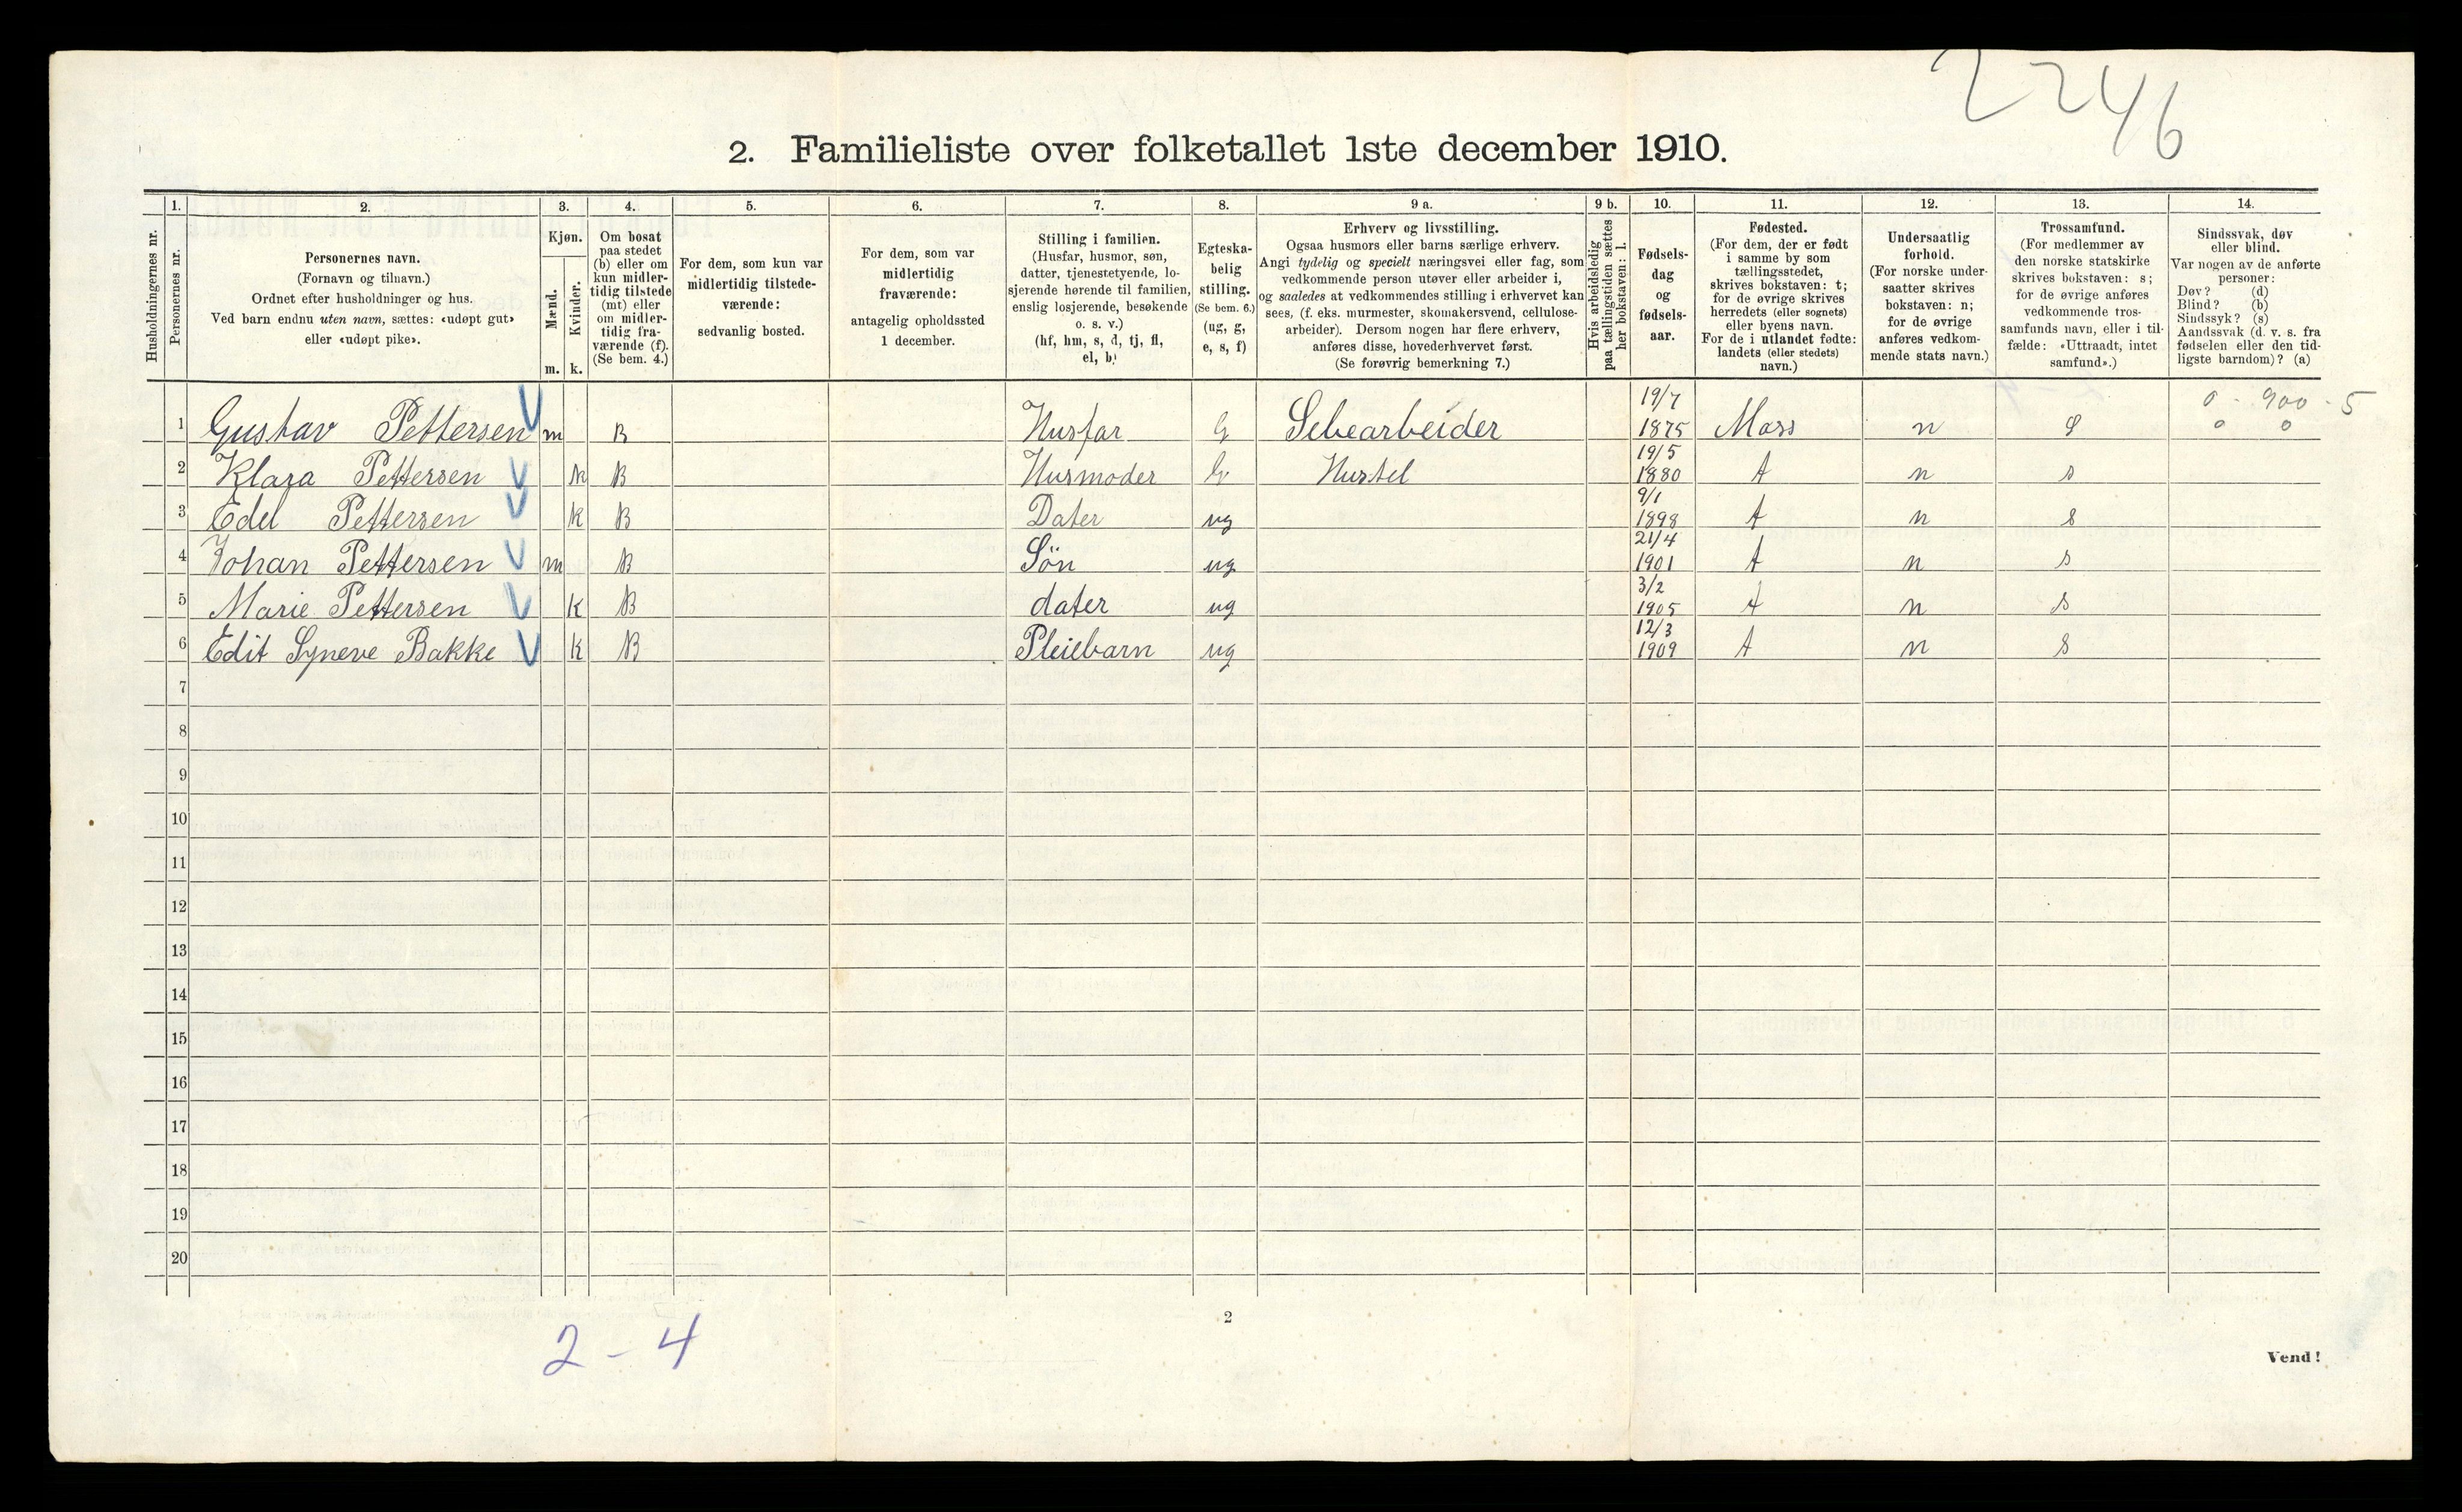 2246
2. Familieliste over folketallet 1ste december 1910.
Husholdningernes nr.
1. Personernes nr.
2. Personernes navn.
(Fornavn og tilnavn.)
Ordnet efter husholdninger og hus.
Ved barn endnu uten navn, sættes: «udøpt gut»
eller «udøpt pike».
3. Kjøn.
Mænd. m.
Kvinder. k.
4. Om bosat
paa stedet
(b) eller om
kun midler-
tidig tilstede
(mt) eller
om midler-
tidig fra-
værende (f).
(Se bem. 4.)
5. For dem, som kun var
midlertidig tilstede-
værende:
sedvanlig bosted.
6. For dem, som var
midlertidig
fraværende:
antagelig opholdssted
1 december.
7. Stilling i familien.
(Husfar, husmor, søn,
datter, tjenestetyende, lo-
sjerende hørende til familien,
enslig losjerende, besøkende
o. s. v.)
(hf, hm, s, d, tj, fl,
el, b)
8. Egteska-
belig
stilling.
(Se bem. 6.)
(ug, g,
e, s, f)
9 a. Erhverv og livsstilling.
Ogsaa husmors eller barns særlige erhverv.
Angi tydelig og specielt næringsvei eller fag, som
vedkommende person utøver eller arbeider i,
og saaledes at vedkommendes stilling i erhvervet kan
sees, (f. eks. murmester, skomakersvend, cellulose-
arbeider). Dersom nogen har flere erhverv,
anføres disse, hovederhvervet først.
(Se forøvrig bemerkning 7.)
9 b. Hvis arbeidsledig
paa tællingstiden sættes
her bokstaven: l.
10. Fødsels-
dag
og
fødsels-
aar.
11. Fødested.
(For dem, der er født
i samme by som
tællingsstedet,
skrives bokstaven: t;
for de øvrige skrives
herredets (eller sognets)
eller byens navn.
For de i utlandet fødte:
landets (eller stedets)
navn.)
12. Undersaatlig
forhold.
(For norske under-
saatter skrives
bokstaven: n;
for de øvrige
anføres vedkom-
mende stats navn.)
13. Trossamfund.
(For medlemmer av
den norske statskirke
skrives bokstaven: s;
for de øvrige anføres
vedkommende tros-
samfunds navn, eller i til-
fælde: «Uttraadt, intet
samfund».)
14. Sindssvak, døv
eller blind.
Var nogen av de anførte
personer:
Døv? (d)
Blind? (b)
Sindssyk? (s)
Aandssvak (d. v. s. fra
fødselen eller den tid-
ligste barndom)? (a)
0 - 900 - 5
0 0
1 Gustav Pettersen m B Husfar G Sebearbeider 19/7 1875 Moss n S
2 Klara Pettersen k B Husmoder G Hustel 19/5 1880 t n s
3 Edel Pettersen k B Dater ug 9/1 1898 t n s
4 Johan Pettersen m B Sön ug 21/4 1901 t n s
5 Marie Pettersen k B dater ug 3/2 1905 t n s
6 Edit Syneve Bakke k B Pleiebarn ug 12/3 1909 t n s
7
8
9
10
11
12
13
14
15
16
17
18
19
20
2
2 - 4
Vend!